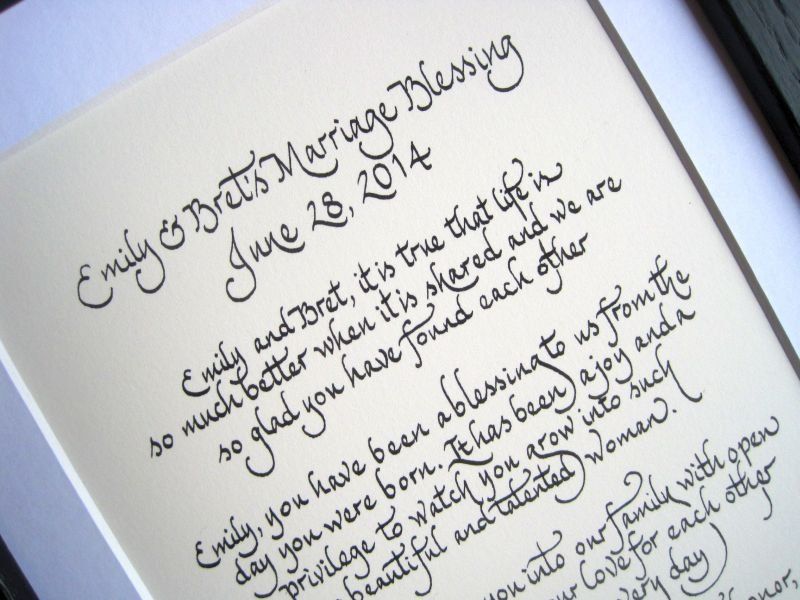 Emily & Bret's Marriage Blessing
June 28, 2014
Emily and Bret, it is true that life is
so much better when it is shared and we are
so glad you have found each other
Emily, you have been a blessing to us from the
day you were born. It has been a joy and a
privilege to watch you grow into such
beautiful and talented woman.
you into our family with open
love for each other
very day